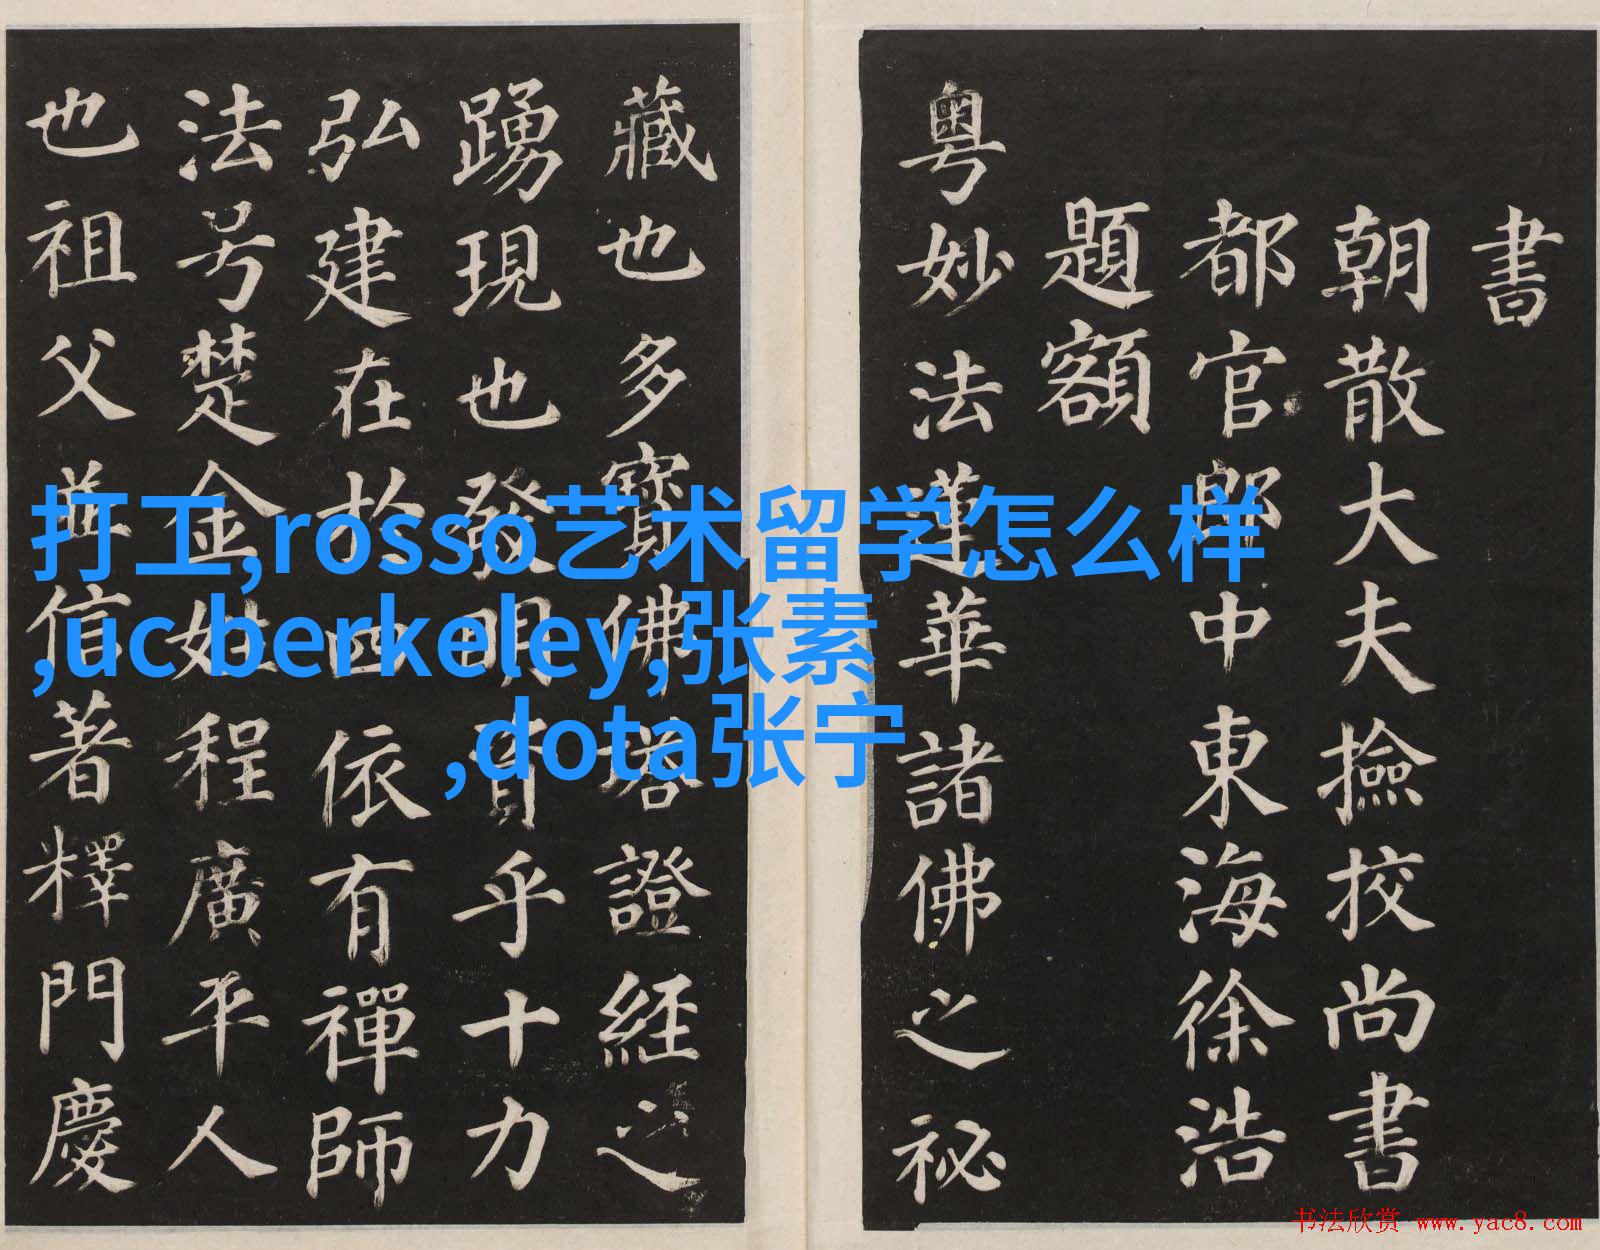 書
朝散大夫撿挍尚書
都官郎中東海徐浩
題額
粵妙法蓮華諸佛之祕
藏也多寶佛塔證經之
踴現也發明資乎十力
弘建在於四依有禪師
法号楚金姓程廣平人
也祖父並信著釋門慶
打工,rosso艺术留学怎么样
,uc berkeley,张素
,dota张宁
书法欣赏 www.yac8.com